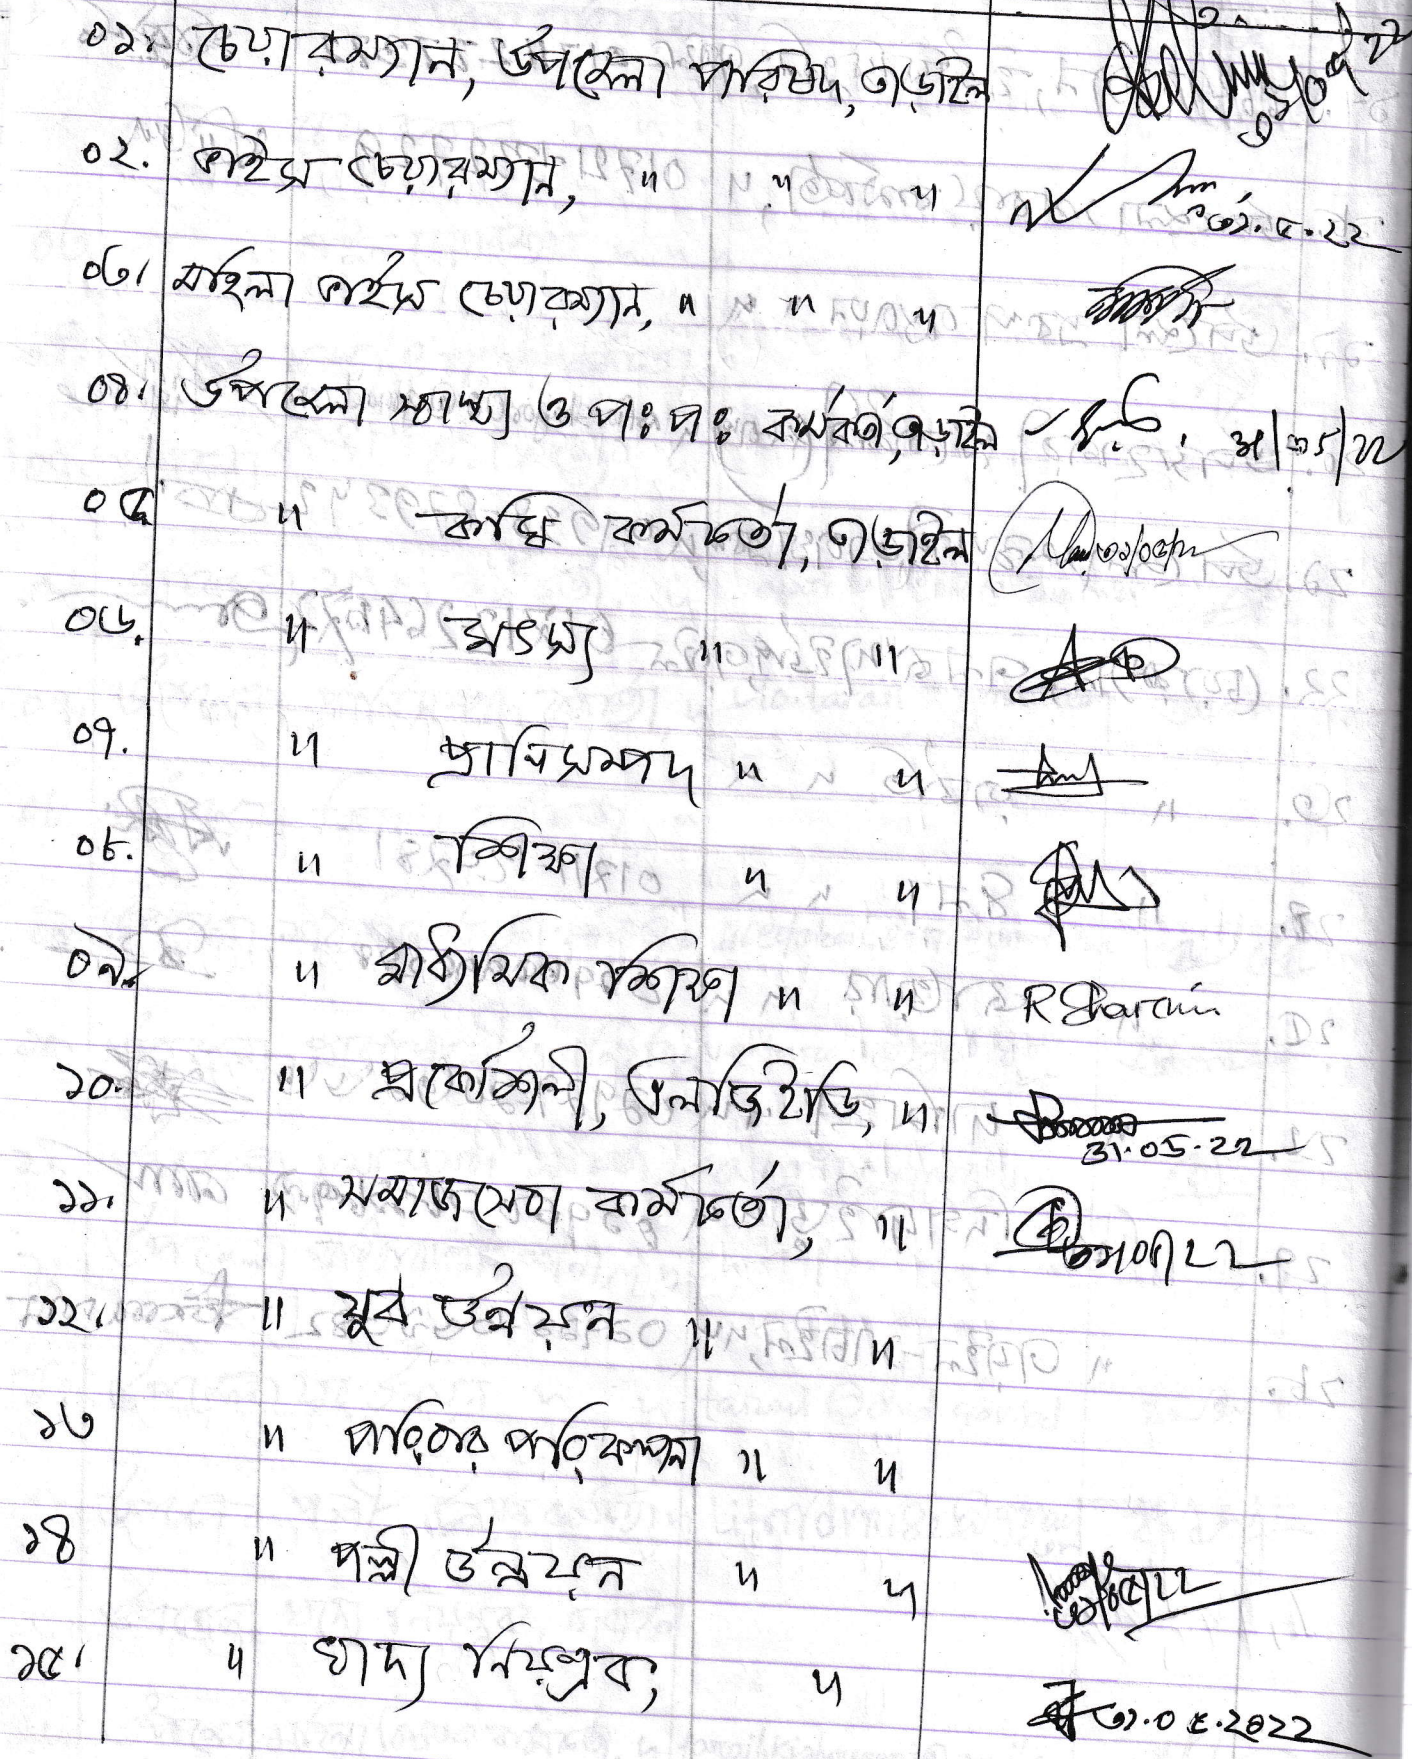 ০১। চেয়ারম্যান, উপজেলা পরিষদ, তাড়াইল
০২. ভাইস চেয়ারম্যান, " " " ৩১.৫.২২
০৩। মহিলা ভাইস চেয়ারম্যান, " " "
০৪। উপজেলা স্বাস্থ্য ও পঃ পঃ কর্মকর্তা, তাড়াইল ৩১/০৫/২২
০৫ " কৃষি কর্মকর্তা, তাড়াইল
০৬. " মৎস্য " "
০৭. " প্রাণিসম্পদ " "
০৮. " শিক্ষা " "
০৯. " মাধ্যমিক শিক্ষা " " R Sharmin
১০. " প্রকৌশলী, এলজিইডি, " 31.05.22
১১. " সমাজসেবা কর্মকর্তা, "
১২. " যুব উন্নয়ন " "
১৩ " পরিবার পরিকল্পনা " "
১৪ " পল্লী উন্নয়ন " "
১৫। " খাদ্য নিয়ন্ত্রক, " ৩১.০৫.২০২২